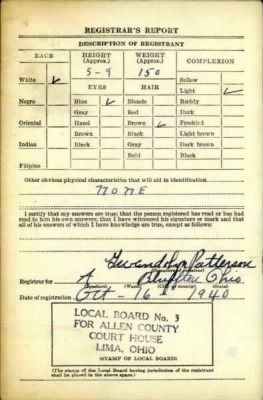 REGISTRAR'S REPORT
DESCRIPTION OF REGISTRANT
RACE HEIGHT (Approx.) WEIGHT (Approx.) COMPLEXION
5-9 150
White ✓ Sallow
EYES HAIR Light ✓
Negro Blue ✓ Blonde Ruddy
Gray Red Dark
Oriental Hazel Brown ✓ Freckled
Brown Black Light brown
Indian Black Gray Dark brown
Bald Black
Filipino
Other obvious physical characteristics that will aid in identification
NONE
I certify that my answers are true; that the person registered has read or has had read to him his own answers; that I have witnessed his signature or mark and that all of his answers of which I have knowledge are true, except as follows:
Gwendolyn Patterson
(Signature of registrar)
Registrar for A Bluffton Ohio
(Precinct) (Ward) (City or county) (State)
Date of registration Oct - 16 - 1940
LOCAL BOARD No. 3
FOR ALLEN COUNTY
COURT HOUSE
LIMA, OHIO
(STAMP OF LOCAL BOARD)
(The stamp of the Local Board having jurisdiction of the registrant
shall be placed in the above space.)